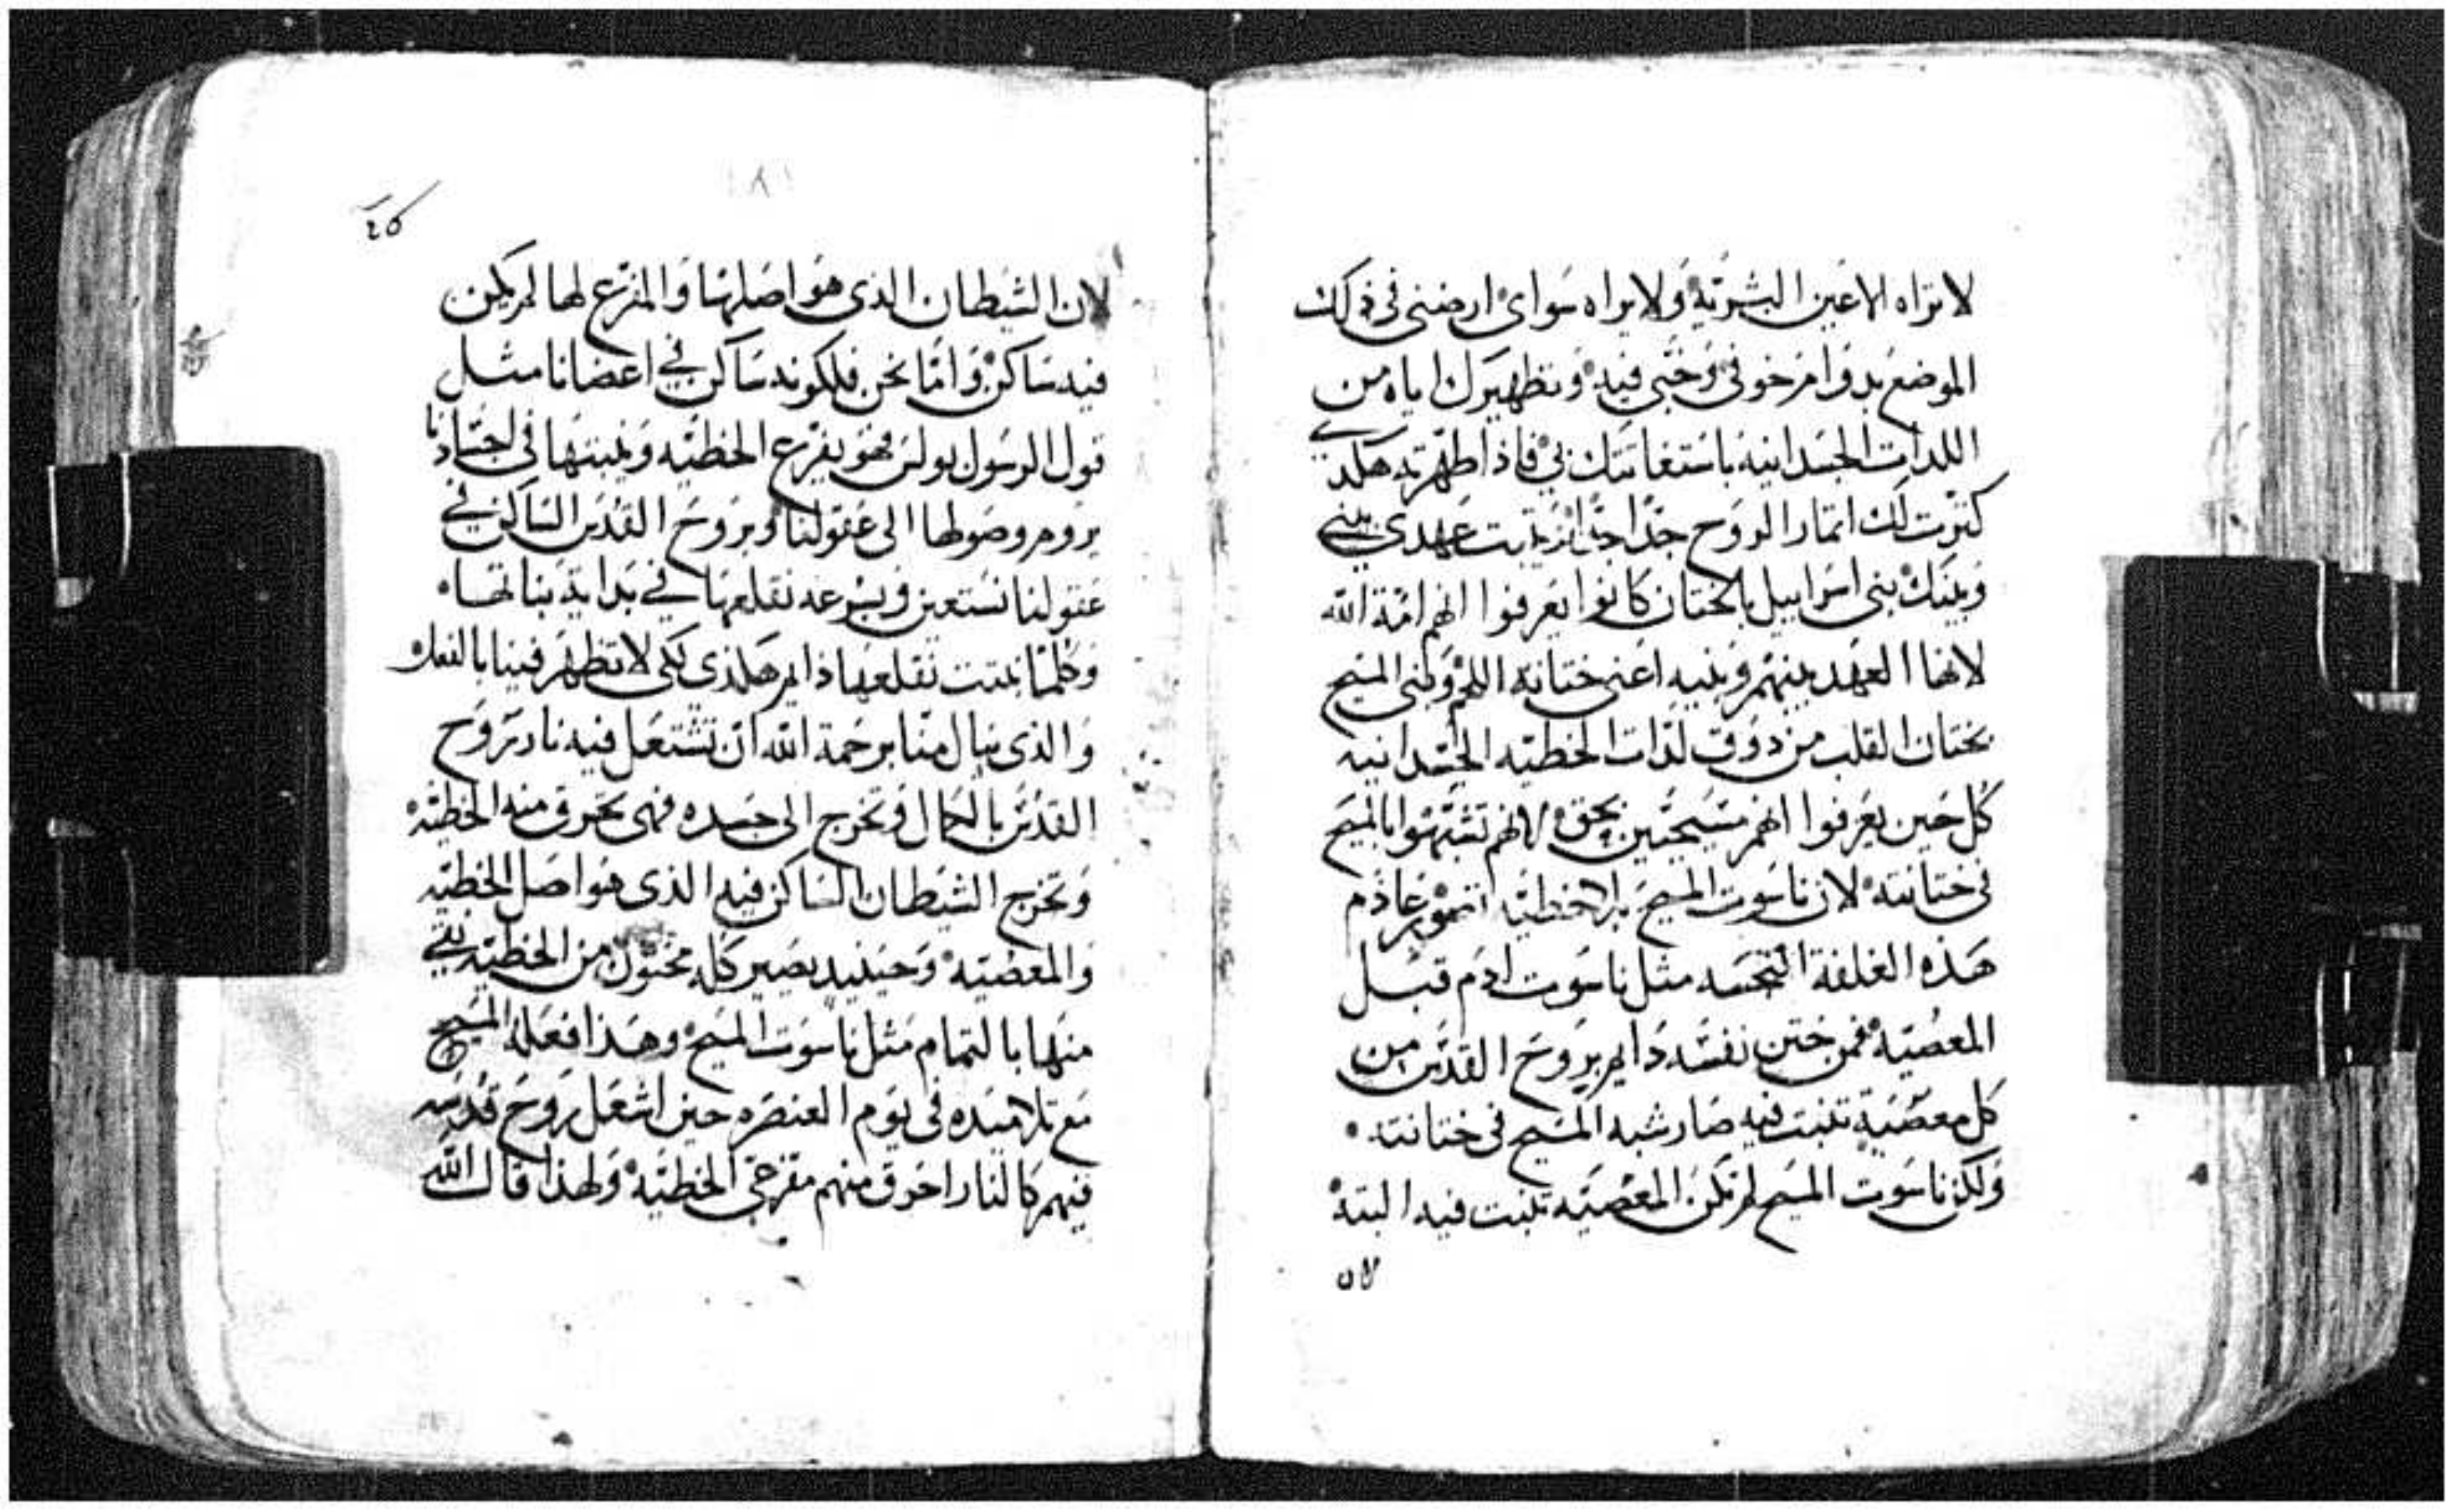 لا تراه الاعين البشريه ولا يراه سواى ارضنى فى ذلك
الموضع بدوام خوفى وحبى فيه وتطهيرك اياه من
اللدات الجسدانيه باستغاتتك بى فاذا طهرته هكدى
كترت لك اتمار الروح جدا جدا تبت عهدي بيني
وبينك بنى اسراييل بالختان كانوا يعرفوا انهم امة الله
لانها العهد بينهم وبنيه اعنى ختانة اللحم وبنى المسيح
بختان القلب من دوق لدات الخطيه الجسدانيه
كل حين يعرفوا انهم مسيحيين بحق لانهم تشبهوا بالمسيح
فى ختانته لان ناسوت المسيح بلا خطيه عادم
هذه الغلفة النجسه مثل ناسوت ادم قبل
المعصيه فمن ختن نفسه دايم بروح القدس من
كل معصية تنبت فيه صار شبه المسيح فى ختانته
ولكن ناسوت المسيح لم تكن المعصيه تنبت فيه البته
لان
٤٥
لان الشيطان الذى هو اصلها والمفرع لها لم يكن
فيه ساكن واما نحن فلكونه ساكن في اعضانا مثل
قول الرسول بولس فهو يفرع الخطيه وينبتها فى اجسادنا
يروم وصولها الى عقولنا وبروح القدس الساكن في
عقولنا نستعين وبسرعه نقلعها في بداية نباتها
وكلما نبتت نقلعها دايم هكذى لكى لا تظهر فينا بالفعل
والذى ينال منا برحمة الله ان تشتعل فيه نار روح
القدس بالكمال وتخرج الى جسده فهى تحرق منه الخطيه
وتخرج الشيطان الساكن فيه الذى هو اصل الخطيه
والمعصيه وحينيد يصير كله مختون من الخطيه نقي
منها بالتمام مثل ناسوت المسيح وهذا فعله المسيح
مع تلاميده فى يوم العنصره حين اشعل روح قدسه
فيهم كالنار احرق منهم مفرخى الخطيه ولهذا قال الله